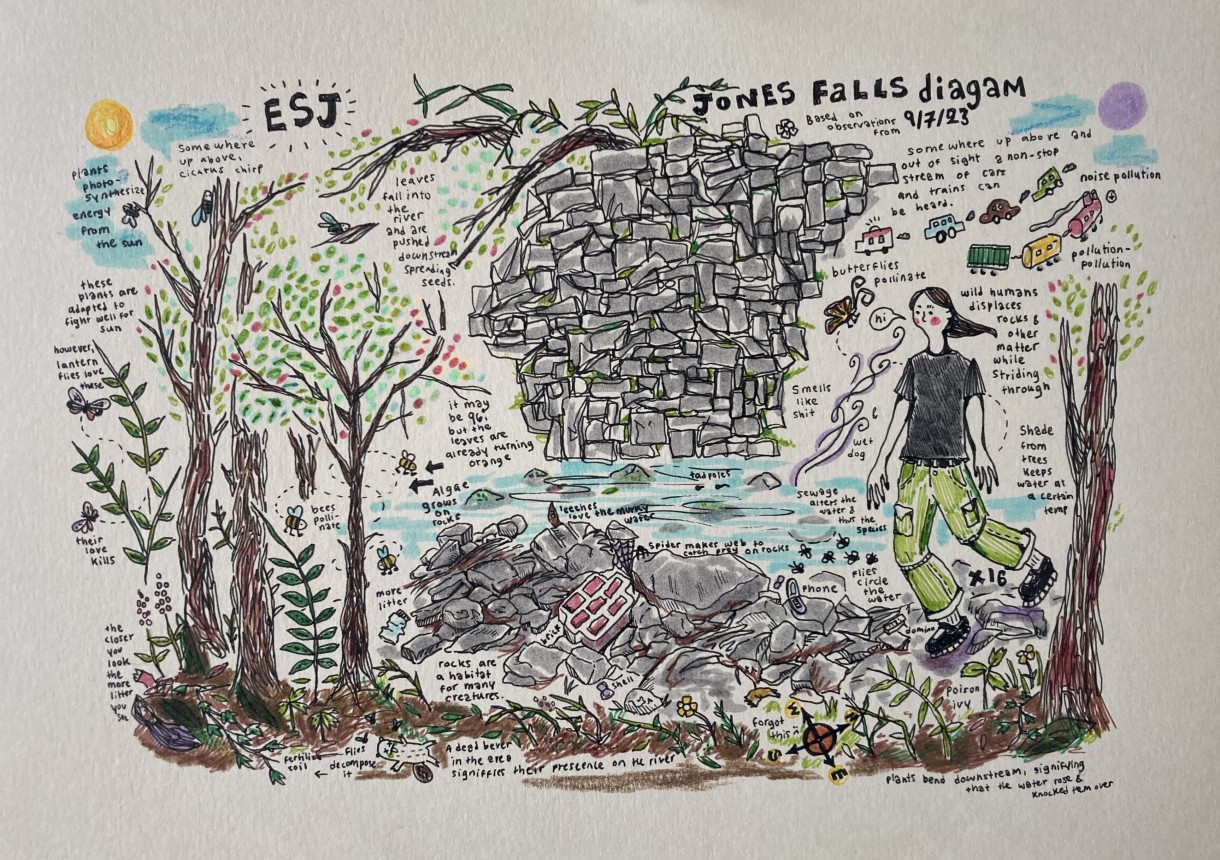 ESJ
JONES FALLS diagam
Based on
observations
from 9/7/23
some where
up above,
cicatas chirp
plants
photo-
synthesize
energy
from
the sun
these
plants are
adapted to
fight well for
sun
however,
lantern
flies love
these
their
love
kills
the
closer
you
look
the
more
litter
you
see
leaves
fall into
the
river
and are
pushed
downstream
spreading
seeds.
it may
be 96,
but the
leaves are
already turning
orange
Algae
grows
on
rocks
bees
polli-
nate
more
litter
tadpoles
leeches
love the murky
water
spider makes web to
catch prey on rocks
brick
rocks are
a habitat
for many
creatures.
shell
fertilize
soil
Flies
decompose
it
A dead bever
in the area
signiffies their prescence on the river
some where up above and
out of sight a non-stop
stream of cars
and trains can
be heard.
noise pollution
pollution-
pollution
butterflies
pollinate
hi
wild humans
displaces
rocks &
other
matter
while
striding
through
Smells
like
shit
&
wet
dog
Shade
from
trees
keeps
water at
a certain
temp
sewage
alters the
water &
thus the
species
flies
circle
the
water
phone
domino
x16
poiron
ivy
forgot
this
N
E
S
plants bend downstream, signifying
that the water rose &
knocked tem over